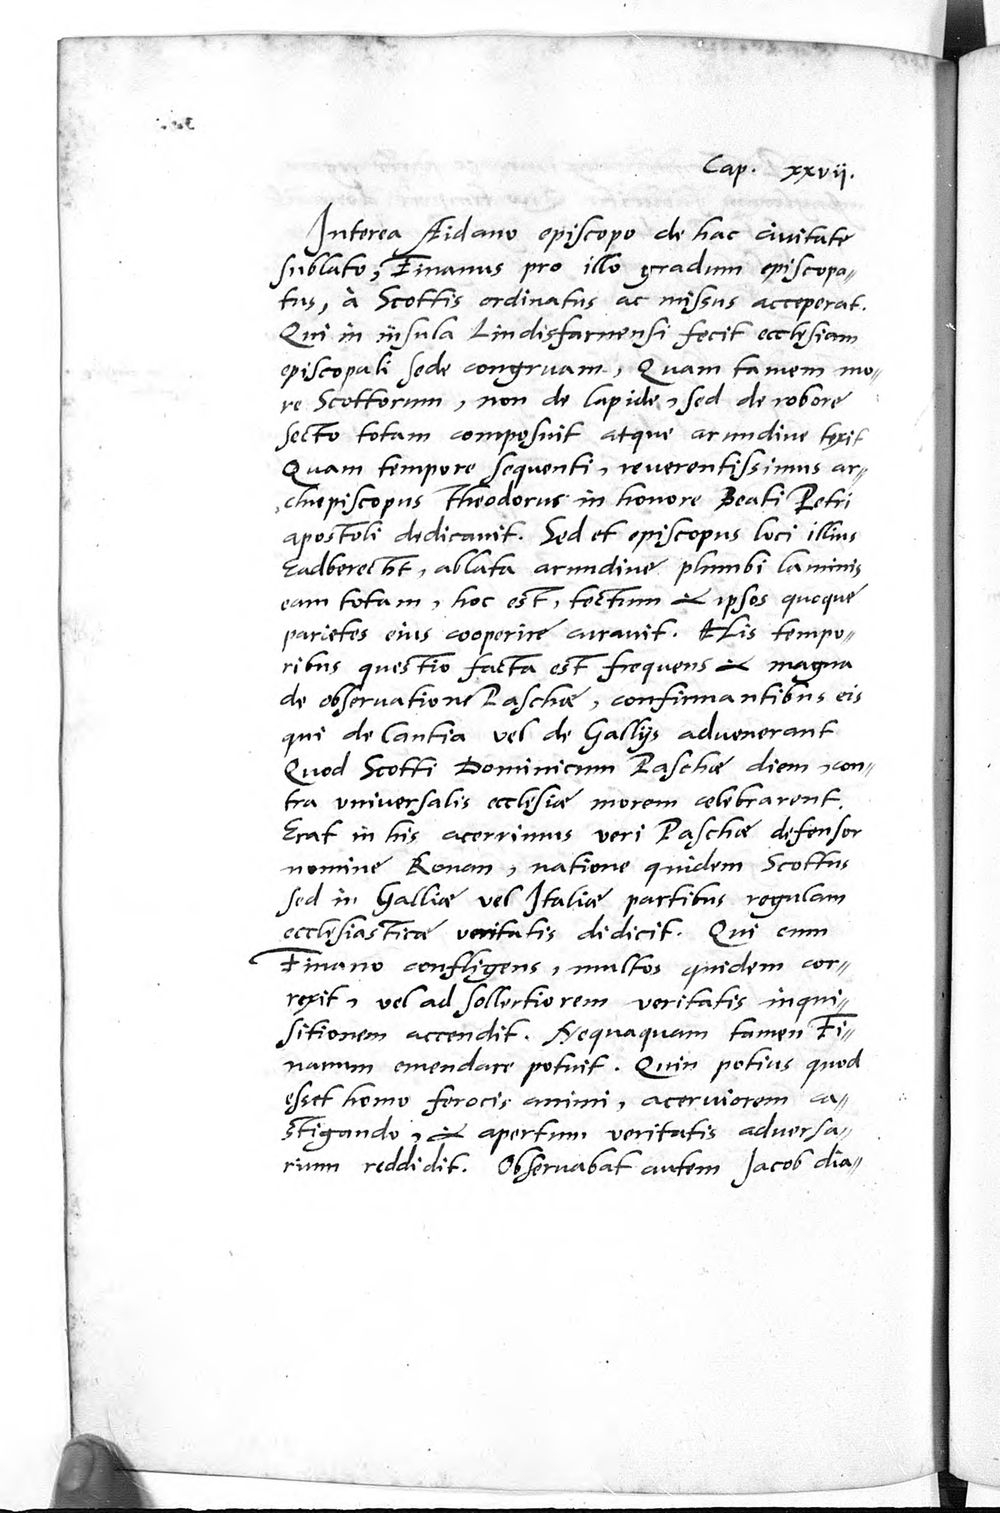 Cap. xxvij.
Interea Aidano episcopo de hac civitate
sublato, Finanus pro illo gradum episcopa=
tus, à Scottis ordinatus ac missus acceperat.
Qui in insula Lindisfarnensi fecit ecclesiam
episcopali sede congruam, Quam tamen mo=
re Scottorum, non de lapide, sed de robore
secto totam composuit atque arundine texit
Quam tempore sequenti, reverentissimus ar=
chiepiscopus Theodorus in honore Beati Petri
apostoli dedicavit. Sed et episcopus loci illius
Eadberecht, ablata arundine plumbi laminis
eam totam, hoc est, tectum & ipsos quoque
parietes eius cooperire curavit. His tempo=
ribus questio facta est frequens & magna
de observatione Paschæ, confirmantibus eis
qui de Cantia vel de Gallijs advenerant
Quod Scotti Dominicum Paschæ diem, con=
tra universalis ecclesiæ morem celebrarent.
Erat in his acerrimus veri Paschæ defensor
nomine Ronan, natione quidem Scottus
sed in Galliæ vel Italiæ partibus regulam
ecclesiasticæ veritatis didicit. Qui cum
Finano confligens, multos quidem cor=
rexit, vel ad sollertiorem veritatis inqui=
sitionem accendit. Nequaquam tamen Fi=
nanum emendare potuit. Quin potius quod
esset homo ferocis animi, acerviorem ca=
stigando, & apertum veritatis adversa=
rium reddidit. Observabat autem Jacob dia=